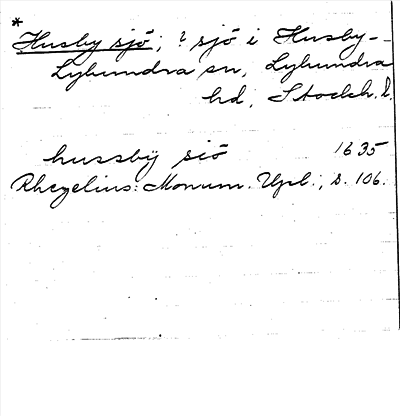 *
Husby sjö; ? sjö i Husby-
Lyhundra sn, Lyhundra
hd, Stockh. l.
hussbÿ siö 1635
Rhezelius: Monum. Upl., s. 106.